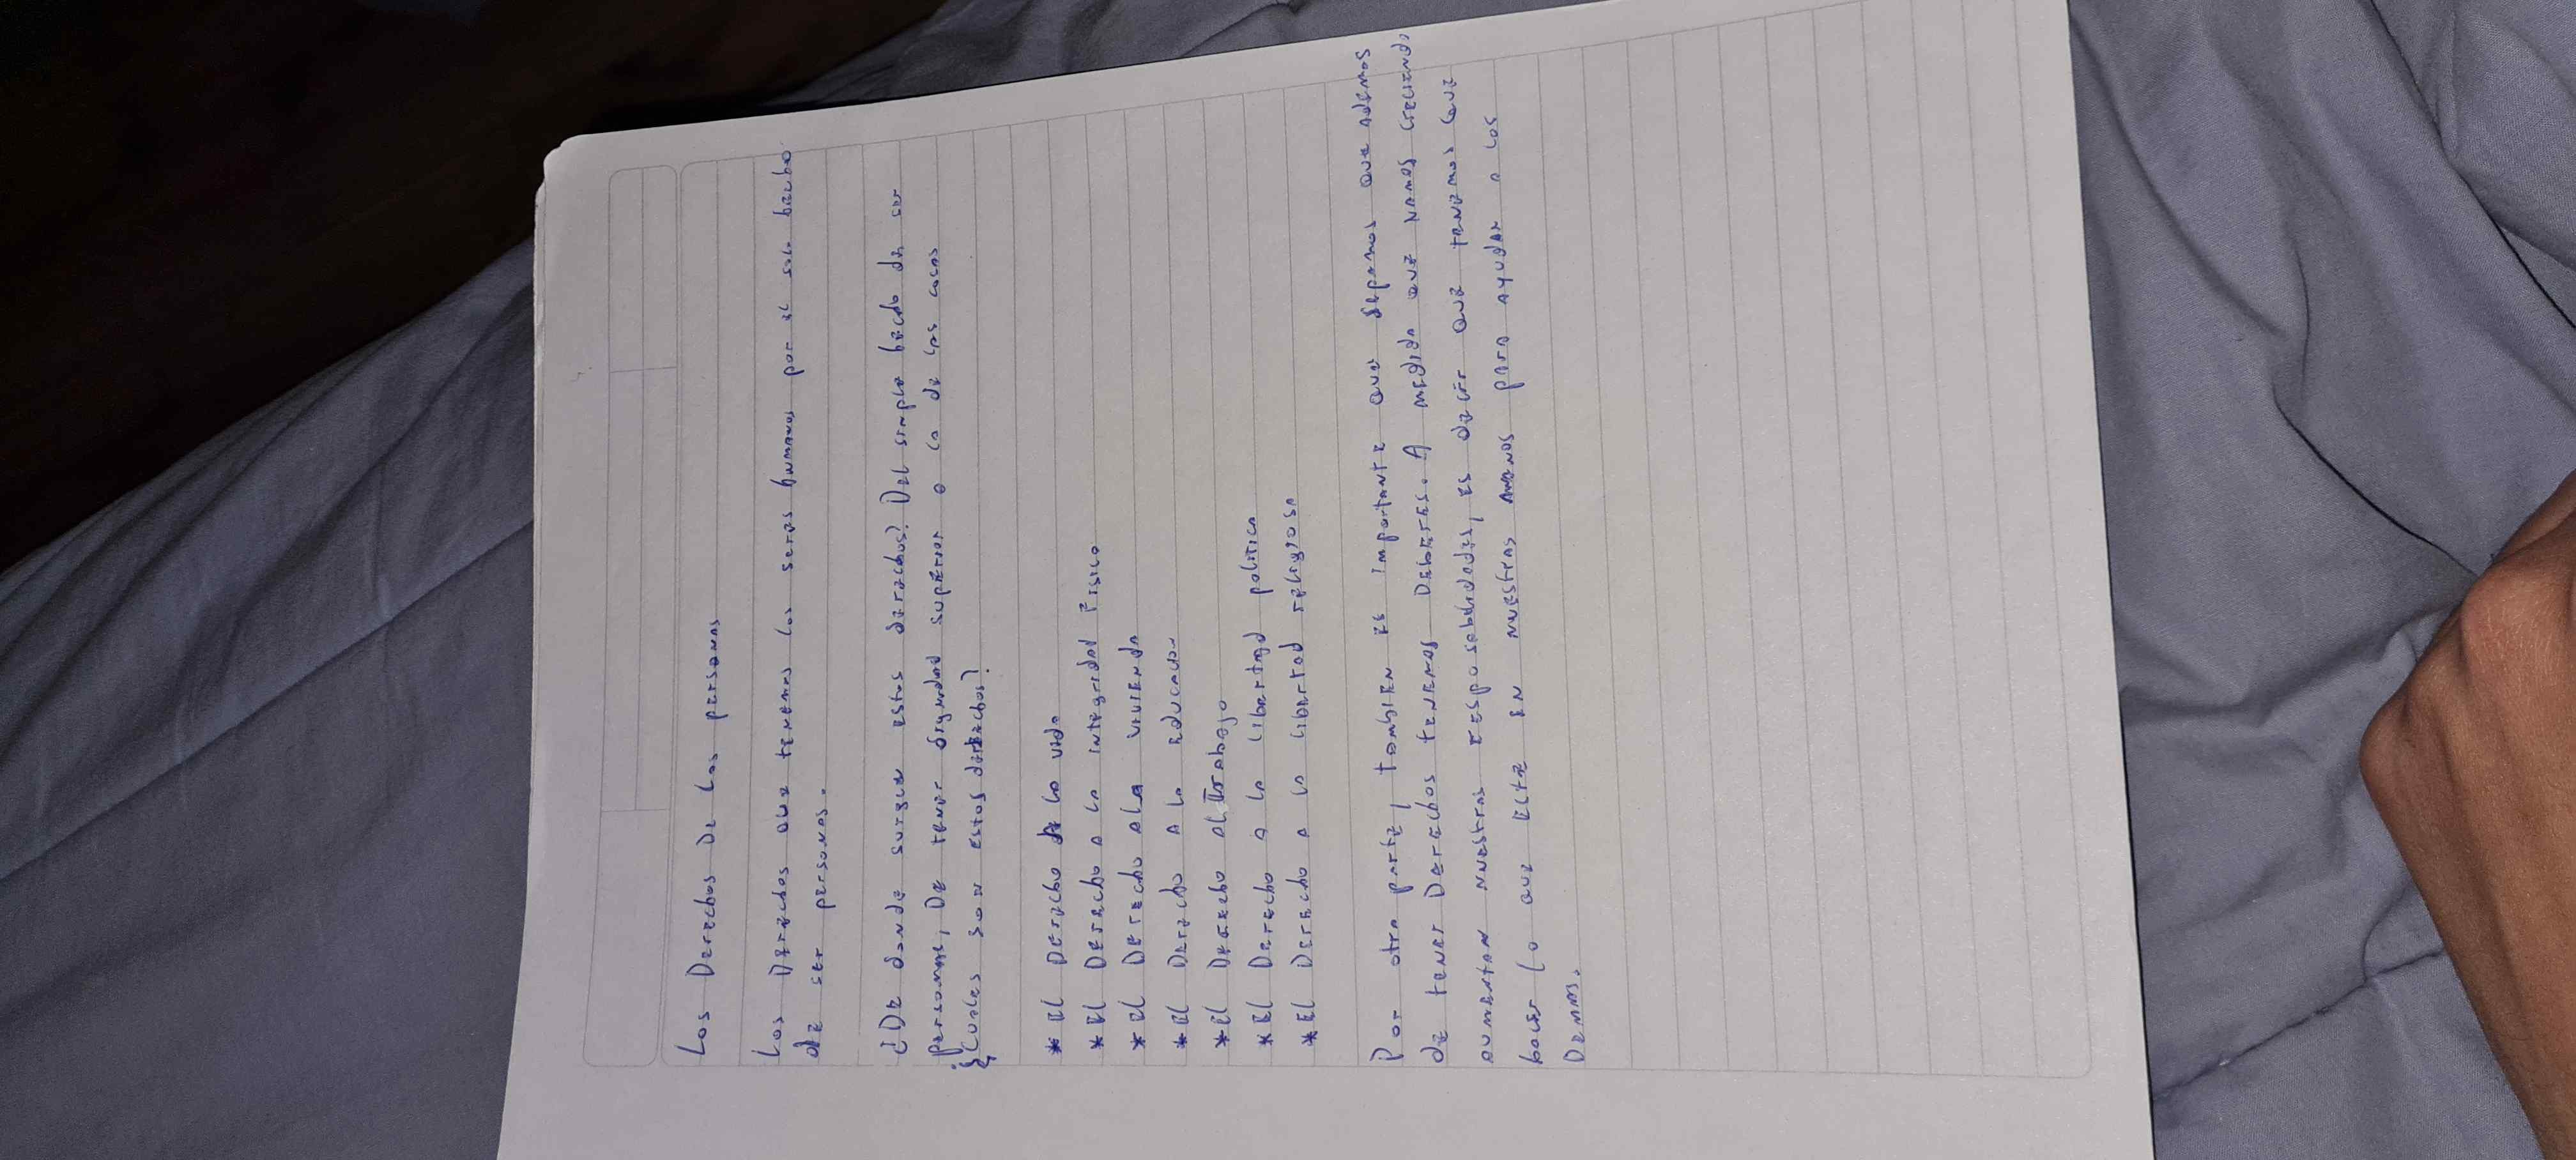 Los Derechos De Las personas
Los Derechos que tenemos los seres humanos por el solo hecho
de ser personas.
¿De donde surgen estos derechos? Del simple hecho de ser
personas, De tener dignidad superior a la de las cosas
¿Cuales son estos derechos?
* El Derecho de la vida
* El Derecho a la integridad Fisica
* El Derecho a la vivienda
* El Derecho a la educacion
* El Derecho al Trabajo
* El Derecho a la libertad politica
* El Derecho a la libertad religiosa
Por otra parte, tambien es importante que sepamos que ademas
de tener Derechos tenemos Deberes. A medida que vamos creciendo
aumentan nuestras resposabilidades, es decir que tenemos que
hacer lo que este en nuestras manos para ayudar a los
Demas.